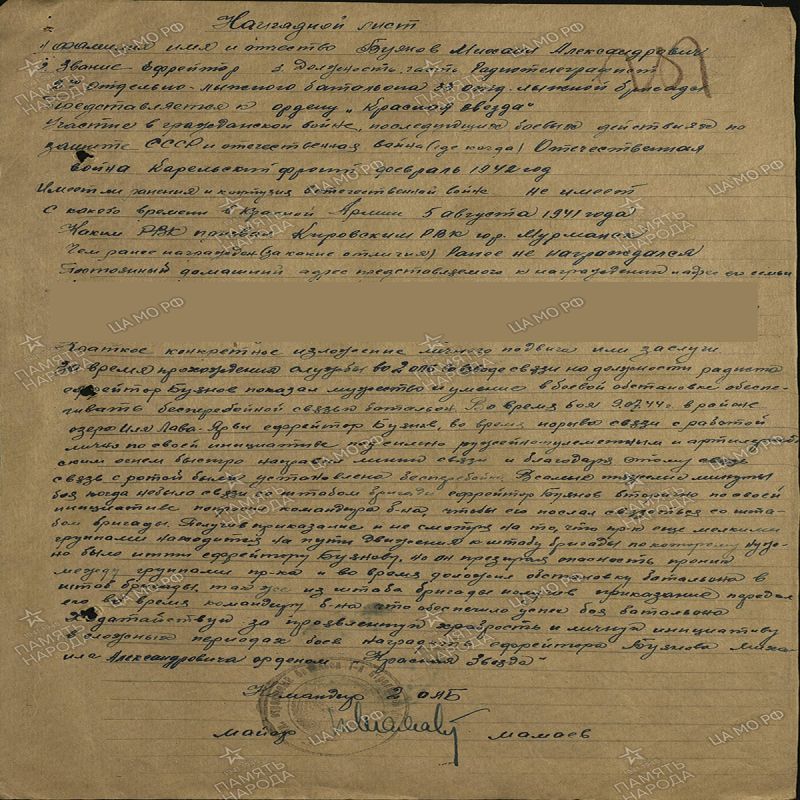 Наградной лист
1 Фамилия имя и отчество Буянов Михаил Александрович
2. Звание Ефрейтор 3. Должность, часть Радиотелеграфист
2го отдельно-лыжного батальона 33 отд. лыжной бригады
Представляется к ордену „Красная звезда“
Участие в гражданской войне, последующих боевых действиях по
защите СССР и отечественная война (где когда) Отечественная
война Карельский фронт февраль 1942 год
Имеет ли ранения и контузия в отечественной войне не имеет
С какого времени в Красной Армии 5 августа 1941 года
Каким РВК призван Кировским РВК гор. Мурманск
Чем ранее награжден (за какие отличия) Ранее не награждался
Постоянный домашний адрес представляемого к награждению и адрес его семьи
Краткое конкретное изложение личного подвига или заслуги
За время прохождения службы во 2 олб во взводе связи на должности радиста
ефрейтор Буянов показал мужество и умение в боевой обстановке обеспе-
чивать бесперебойной связью батальон. Во время боя 9.07.44г. в районе
озера Иля Лава-Ярви ефрейтор Буянов, во время порыва связи с ротой
лично по своей инициативе под сильно ружейно пулеметным и артиллерий-
ским огнем быстро направил линию связи и благодаря этому связь
связь с ротой была установлена бесперебойно. В самые тяжелые минуты
боя когда небыло связи со штабом бригады ефрейтор Буянов вторично по своей
инициативе попросил командира б-на, чтобы его послал связаться со шта-
бом бригады. Получив приказание и не смотря на то, что пр-к еще мелкими
группами находится на пути движения к штабу бригады по которому нуж-
но было итти ефрейтору Буянову, но он презирая опасность прошел
между группами пр-ка и во время доложил обстановку батальона в
штаб бригады, так же из штаба бригады получив приказание передал
его во время командиру б-на что обеспечило успех боя батальона
Ходатайствую за проявленную храбрость и личную инициативу
в сложных периодах боев наградить ефрейтора Буянова Миха-
ила Александровича орденом „Красная Звезда“
Командир 2 ОЛБ
майор Мамаев
ПАМЯТЬ НАРОДА
ЦА МО РФ